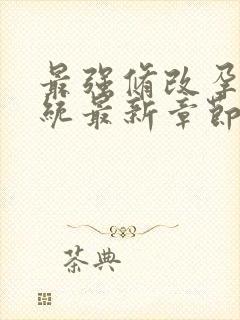 最强脩改孕
统最新章节
茶典